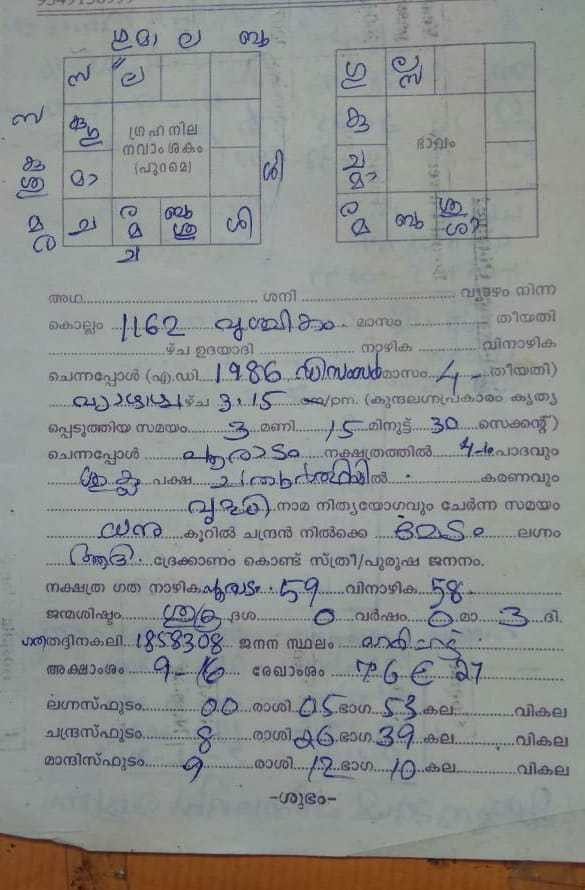 ഗു മാ ല ബു
സ ല
സ
ഗ്രഹനില
നവാംശകം
(പുറമെ)
മാ
ശി
മ ച ര മ ബു ശു ശി
ച
ഗു ല
കു ഭാവം
ച മാ
ര മ ബു
അഥ ശനി വ്യാഴം നിന്ന
കൊല്ലം 1162 വൃശ്ചികം മാസം തീയതി
ഴ്ച ഉദയാദി നാഴിക വിനാഴിക
ചെന്നപ്പോൾ (എ.ഡി. 1986 ഡിസംബർ മാസം 4 തീയതി)
വ്യാഴാഴ്ച ഴ്ച 3.15 am/pm. (കുന്ദലഗ്നപ്രകാരം കൃത്യ
പ്പെടുത്തിയ സമയം 3 മണി 15 മിനുട്ട് 30 സെക്കന്റ്)
ചെന്നപ്പോൾ പൂരാടം നക്ഷത്രത്തിൽ 4-ാം പാദവും
ശുക്ല പക്ഷ ചതുർത്ഥിയിൽ കരണവും
വൃദ്ധി നാമ നിത്യയോഗവും ചേർന്ന സമയം
ധനു കൂറിൽ ചന്ദ്രൻ നിൽക്കെ മേടം ലഗ്നം
ആദി ദ്രേക്കാണം കൊണ്ട് സ്ത്രീ/പുരുഷ ജനനം.
നക്ഷത്ര ഗത നാഴിക പൂരാടം 59 വിനാഴിക 58
ജന്മശിഷ്ടം ശുക്ര ദശ 0 വർഷം 0 മാ 3 ദി.
ഗത തദ്ദിനകലി 1858308 ജനന സ്ഥലം
അക്ഷാംശം 9-16 രേഖാംശം 76 E 27
ലഗ്നസ്ഫുടം 00 രാശി 05 ഭാഗ 53 കല വികല
ചന്ദ്രസ്ഫുടം 8 രാശി 26 ഭാഗ 39 കല വികല
മാന്ദിസ്ഫുടം 9 രാശി 12 ഭാഗ 10 കല വികല
-ശുഭം-